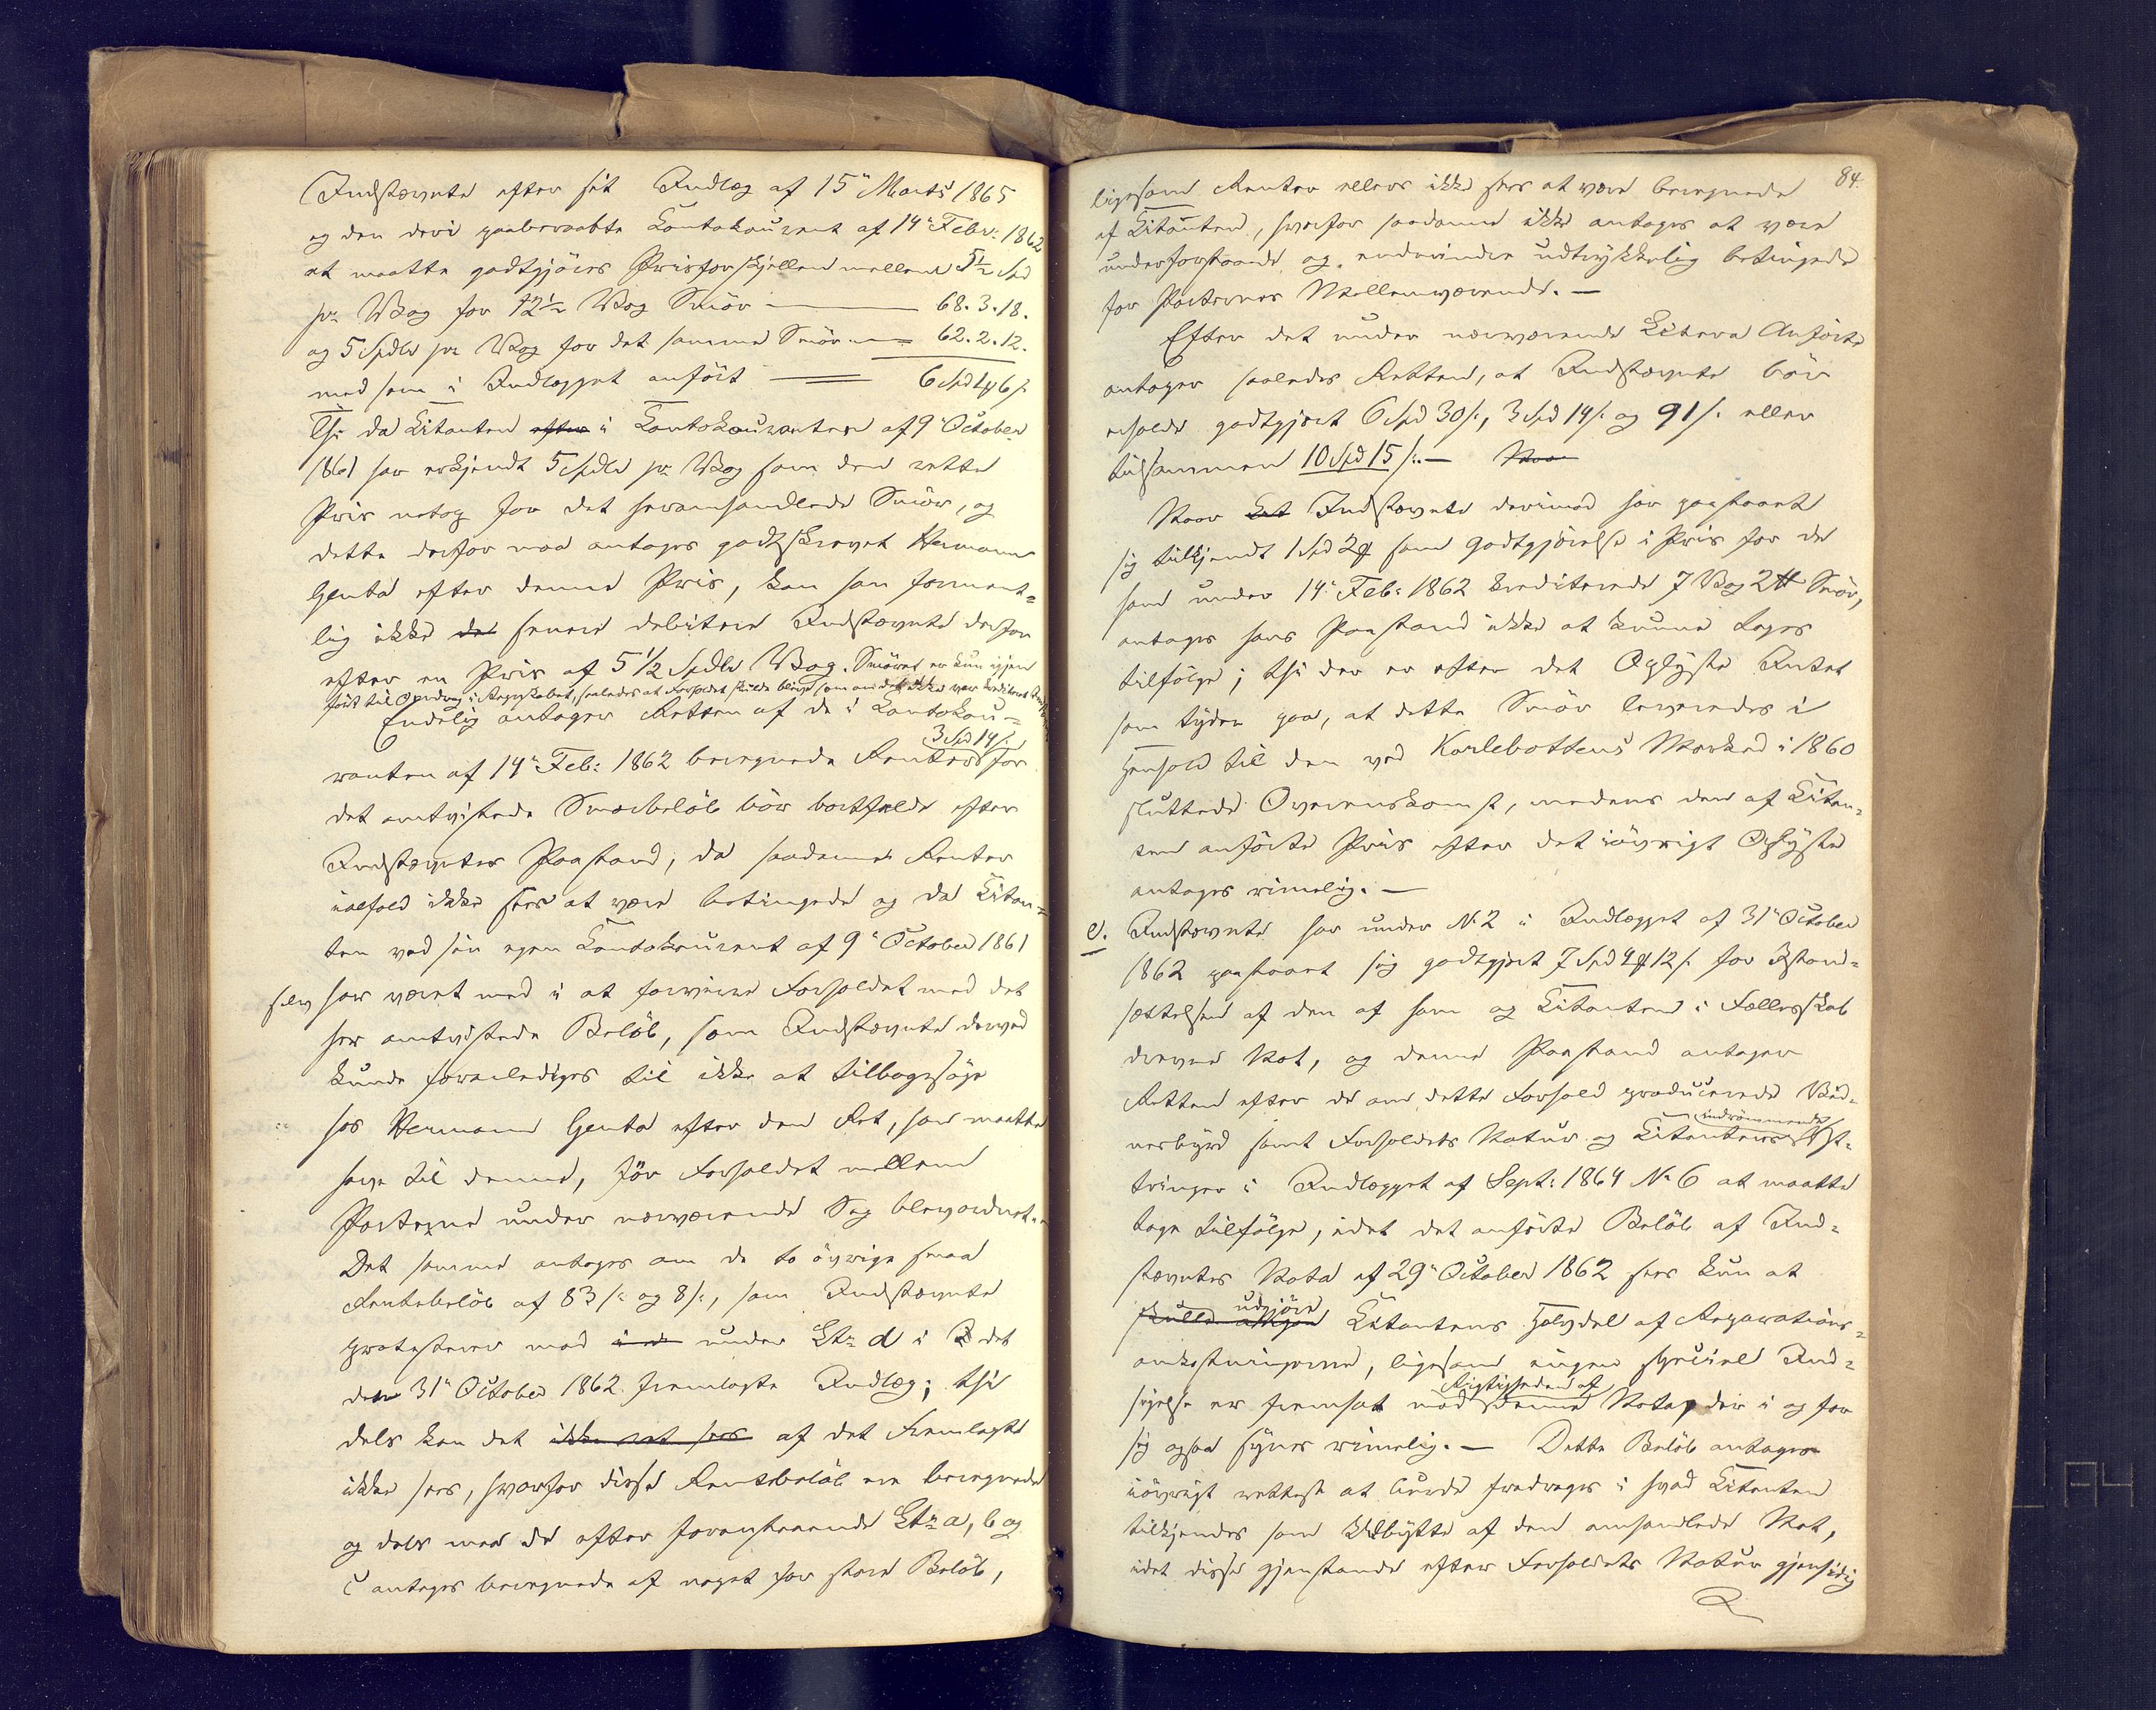 Indstævnte efter sit Indlæg af 15de Marts 1865
og den deri paaberaabte Contokourant af 14de Febr: 1862
at maatte godtgjöres Prisforskjellen mellem 5½ Spd
pr Vog for 12½ Vog Smör — 68. 3. 18.
og 5 Spdlr pr Vog for det samme Smör — 62. 2. 12.
med som i Indlægget anfört — 6 Spd 1 ort 6 s.
Thi da Citanten efter i Contokouranten af 9de October
1861 har erkjendt 5 Spdlr pr Vog som den rette
Pris netop for det heromhandlede Smör, og
dette derfor maa antages godtskrevet Hermann
Genta efter denne Pris, kan han forment-
lig ikke det senere debitere Indstævnte derfor
efter en Pris af 5½ Spdlr Vog. Smöret er kun igjen
fört til Opdrag i Regnskabet, saaledes at Forholdet skulde blive som om det ikke var krediteret
Endelig antager Retten af de i Contokou-
ranten af 14de Feb: 1862 beregnede Renter 3 Spd 14 s. for
det omtvistede Smörbelöb bör bortfalde efter
Indstævntes Paastand, da saadanne Renter
ialfald ikke sees at være betingede og da Citan-
ten ved sin egen Contokourant af 9de October 1861
selv har været med i at forvirre Forholdet med det
her omtvistede Belöb, som Indstævnte derved
kunde foranlediges til ikke at tilbagesöge
hos Hermann Genta efter den Ret, han maatte
have til denne, för Forholdet mellem
Parterne under nærværende Sag blev ordnet.
Det samme antages om de to övrige smaa
Rentebelöb af 83 s: og 8 s:, som Indstævnte
protesterer mod i de under Ltr d i det
den 31te October 1862 fremlagte Indlæg; thi
dels kan det ikke rat sees af det Fremlagte
ikke sees, hvorfor disse Rentebelöb ere beregnede
og dels med de efter foranstaaende Ltr a, b og
c antages beregnede af noget for store Belöb,
84.
ligesom Renter ellers ikke sees at være beregnede
af Citanten, hvorfor saadanne ikke antages at være
underforstaaede og endmindre udtrykkelig betingede
for Parternes Mellemværende. —
Efter det under nærværende Litera Anförte
antager saaledes Retten, at Indstævnte bör
erholde godtgjort 6 Spd 30 s., 3 Spd 14 s. og 91 s. eller
tilsammen 10 Spd 15 s. — Naar
Naar Cit Indstævnte derimod har paastaaet
sig tilkjendt 1 Spd 2 ort som Godtgjörelse i Pris for de
ham under 14de Feb: 1862 krediterede 7 Vog 2 ℔ Smör,
antages hans Paastand ikke at kunne tages
tilfölge; thi der er efter det Oplyste Intet
som tyder paa, at dette Smör leveredes i
Henhold til den ved Karlebottens Marked i 1860
sluttede Overenskomst, medens den af Citan-
ten anförte Pris efter det iövrigt Oplyste
antages rimelig. —
e. Indstævnte har under No 2 i Indlægget af 31te October
1862 paastaaet sig godtgjort 7 Spd 4 ort 12 s. for Istand-
sættelsen af den af ham og Citanten i Fællesskab
drevne Not, og denne Paastand antager
Retten efter de om dette Forhold producerede Vid-
nesbyrd samt Forholdets Natur og Citantens indrömmende Yt-
tringer i Indlægget af Sept: 1864 No 6 at maatte
tage tilfölge, idet det anförte Belöb af Ind-
stævntes Nota af 29de October 1862 sees kun at
skulle udgjöre Citantens Halvdel af Reparations-
omkostningerne, ligesom ingen speciel Ind-
sigelse er fremsat mod Rigtigheden af denne Nota, der i og for
sig ogsaa synes rimelig. — Dette Belöb antages
iövrigt rettest at burde fradrages i hvad Citanten
tilkjendes som Udbytte af den omhandlede Not,
idet disse Gjenstande efter Forholdets Natur gjensidig